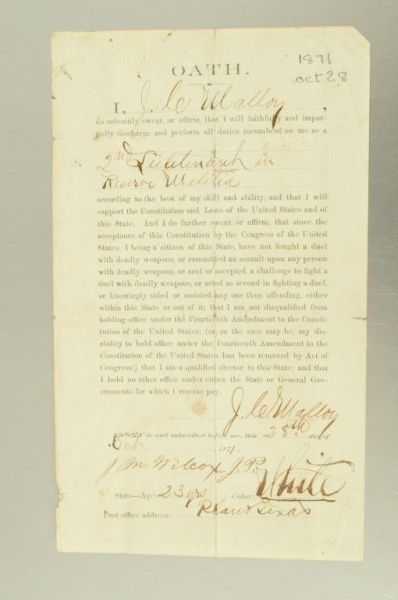 1871
oct 28
OATH.
I, J. C. Malloy,
do solemnly swear, or affirm, that I will faithfully and impar-
tially discharge and perform all duties incumbent on me as a
2nd Lieutenant in
Reserve Militia
according to the best of my skill and ability, and that I will
support the Constitution and Laws of the United States and of
this State. And I do further swear, or affirm, that since the
acceptance of this Constitution by the Congress of the United
States, I being a citizen of this State, have not fought a duel
with deadly weapons, or committed an assault upon any person
with deadly weapons, or sent or accepted a challenge to fight a
duel with deadly weapons, or acted as second in fighting a duel,
or knowingly aided or assisted any one thus offending, either
within this State or out of it; that I am not disqualified from
holding office under the Fourteenth Amendment to the Consti-
tution of the United States; (or, as the case may be, my dis-
ability to hold office under the Fourteenth Amendment to the
Constitution of the United States has been removed by Act of
Congress;) that I am a qualified elector in this State; and that
I hold no other office under either the State or General Gov-
ernments for which I receive pay.
J. C. Malloy
SWORN to and subscribed before me, this 28th day of
Oct 1871.
J M Wilcox J.P.
State—Age: 23 yrs Color: White
Post office address: Plano Texas